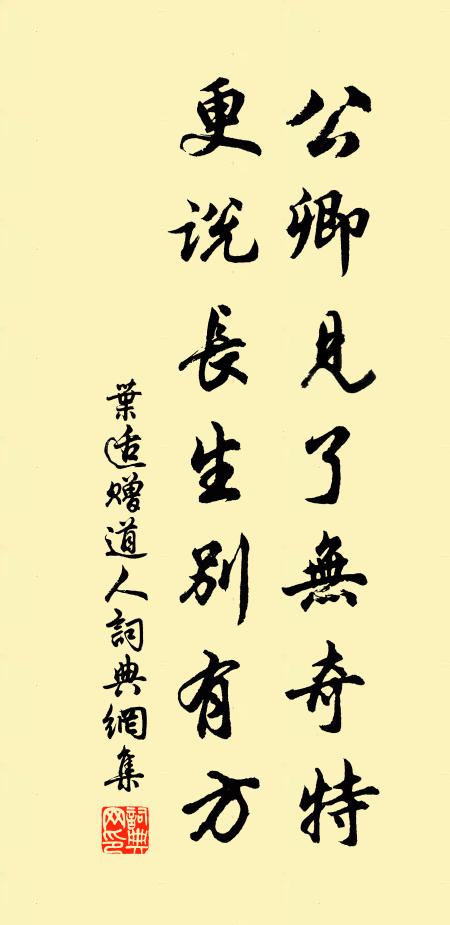 公卿見了無奇特
更說長生別有方
葉适贈道人詞典網集
詞典
网印